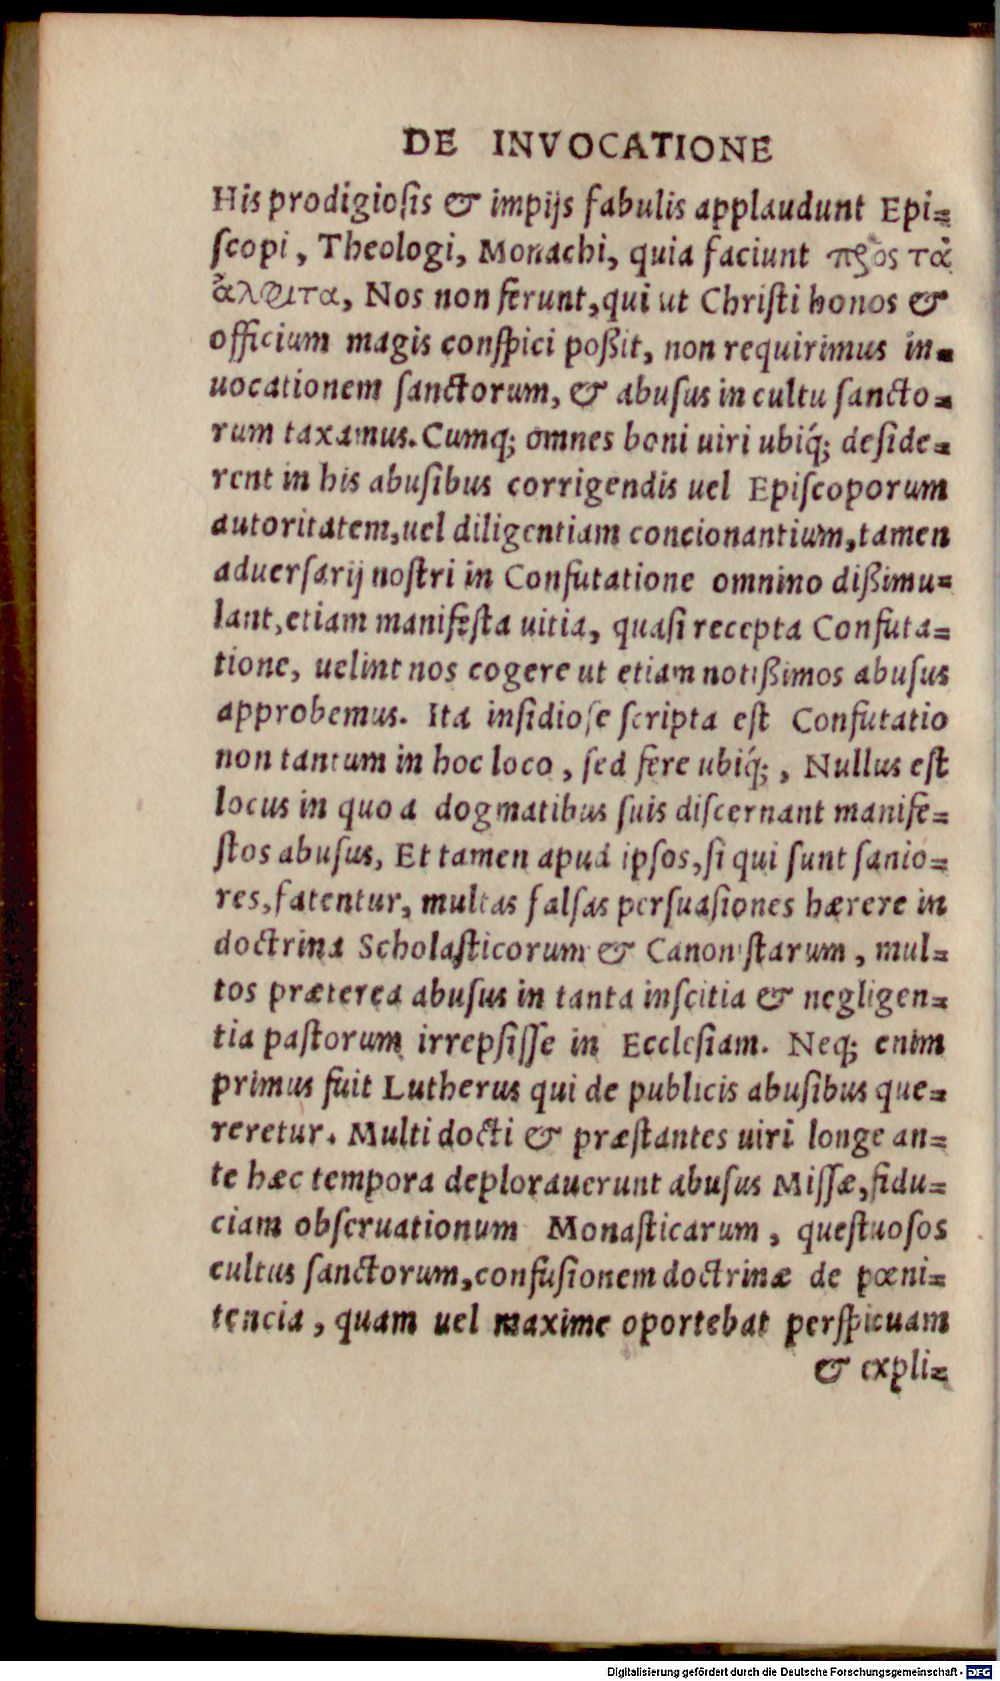 DE INVOCATIONE
His prodigiosis & impijs fabulis applaudunt Epi=
scopi, Theologi, Monachi, quia faciunt πρὸς τὰ
ἄλφιτα, Nos non ferunt, qui ut Christi honos &
officium magis conspici poßit, non requirimus in=
uocationem sanctorum, & abusus in cultu sancto=
rum taxamus. Cumq; omnes boni uiri ubiq́; deside=
rent in his abusibus corrigendis uel Episcoporum
autoritatem, uel diligentiam concionantium, tamen
aduersarij nostri in Confutatione omnino dißimu=
lant, etiam manifesta uitia, quasi recepta Confuta=
tione, uelint nos cogere ut etiam notißimos abusus
approbemus. Ita insidiose scripta est Confutatio
non tantum in hoc loco, sed fere ubiq́;, Nullus est
locus in quo a dogmatibus suis discernant manife=
stos abusus, Et tamen apud ipsos, si qui sunt sanio=
res, fatentur, multas falsas persuasiones hærere in
doctrina Scholasticorum & Canonistarum, mul=
tos præterea abusus in tanta inscitia & negligen=
tia pastorum irrepsisse in Ecclesiam. Neq; enim
primus fuit Lutherus qui de publicis abusibus que=
reretur. Multi docti & præstantes uiri longe an=
te hæc tempora deplorauerunt abusus Missæ, fidu=
ciam obseruationum Monasticarum, questuosos
cultus sanctorum, confusionem doctrinæ de pœni=
tencia, quam uel maxime oportebat perspicuam
& expli=
Digitalisierung gefördert durch die Deutsche Forschungsgemeinschaft - DFG